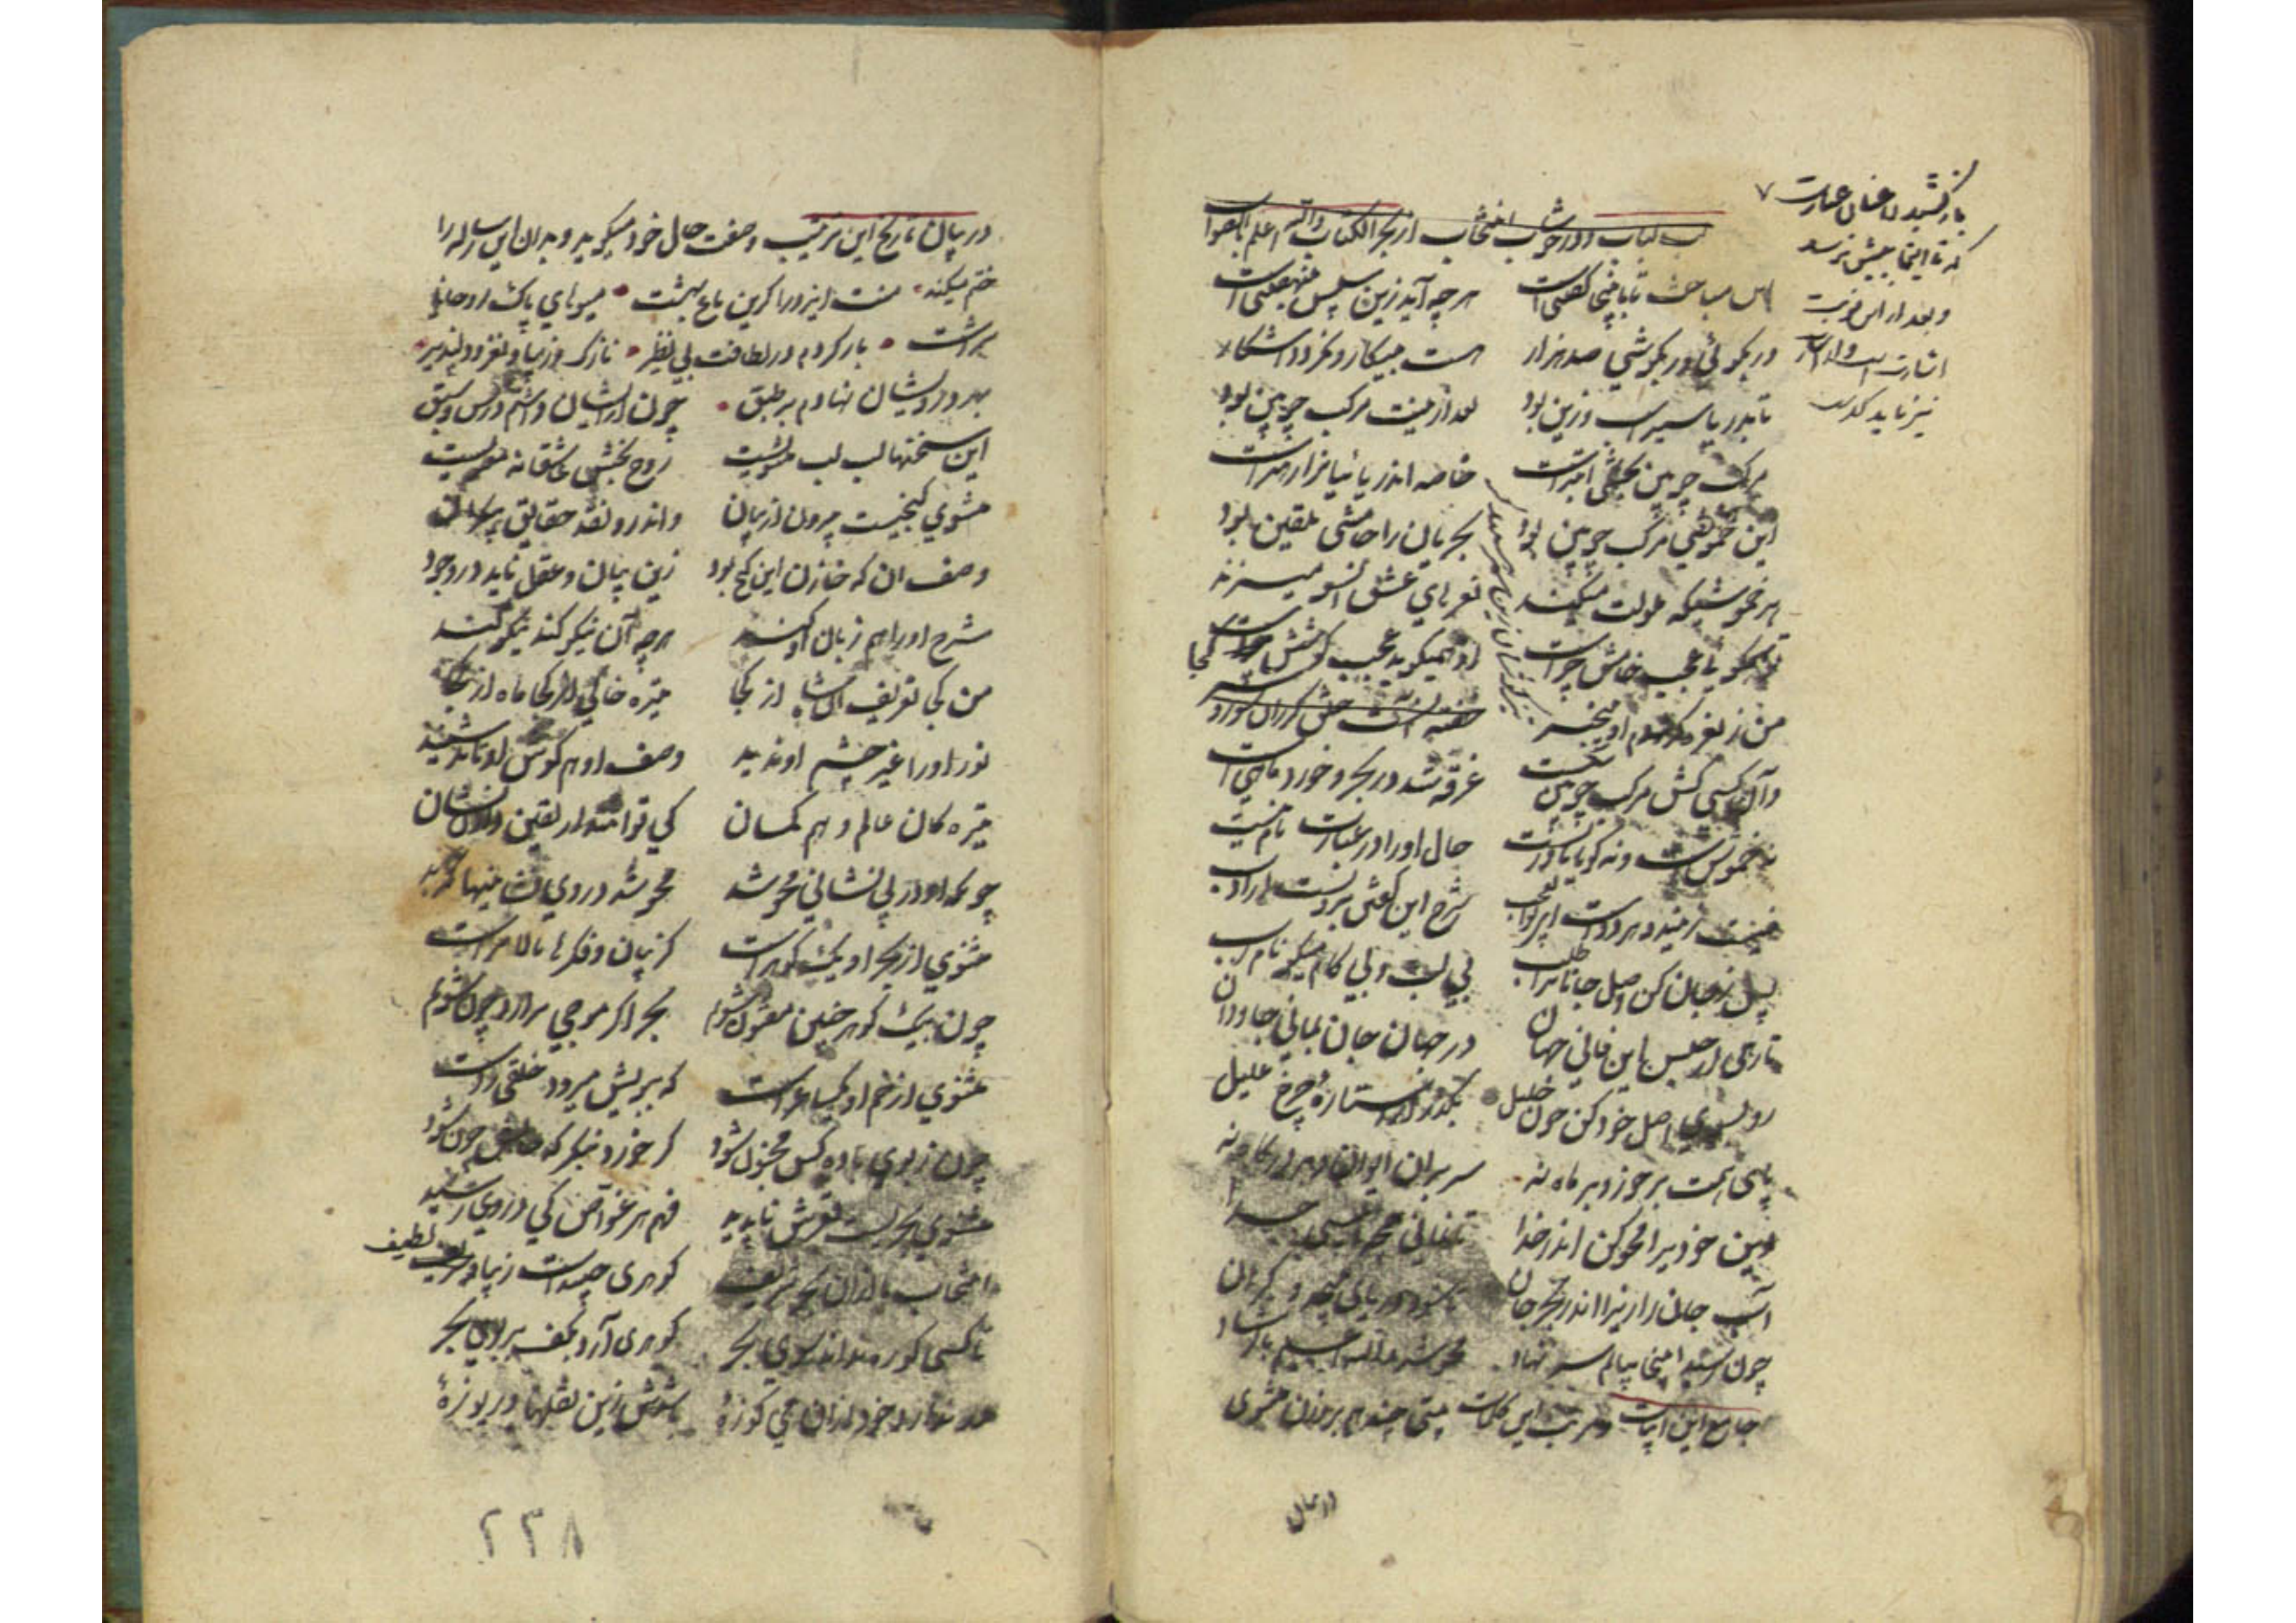 باز کشیدن عنان عبارت
که تا اینجا بیش نرسد
و بعد از این نوبت
اشارت است و اشارت
نیز نماید
لب لباب و در خوشاب انتخاب از بحر الکتاب والله اعلم بالصواب
این مباحث تا بدینجا گفتنی است هر چه آید زین سپس بنهفتنی است
ور بگوئی ور بکوشی صد هزار هست بیگار و نگردد آشکار
تا بدریا سیر اسب و زین بود بعد ازینت مرکب چوبین بود
مرکب چوبین بخشکی ابتر است خاصه اندر دریائیانرا رهبر است
این خموشی مرکب چوبین بود بحریان را خامشی تلقین بود
هر خموشیکه ملولت میکند نعرهای عشق آنسو میزند
تو همیگویی عجب خامش چراست او همیگوید عجب گوشش کجاست
من ز نعره کر شدم او بیخبر
وآن کسی کش مرکب چوبین شکست غرقه شد در بحر و خود ماهی است
نه خموش است و نه گویا نادریست حال او را در عبارت نام نیست
نیست زین دو هر دو هست این بوالعجب شرح این گفتن برونست از ادب
پس ز جان کن وصل جانانرا طلب بی لب و بی کام میگو نام رب
تا رهی از حبس این فانی جهان در جهان جان بمانی جاودان
رو بسوی اصل خود کن چون خلیل بگذر از استاره و چرخ علیل
پای همت بر خور و بر ماه نه سر بران ایوان و بر درگاه نه
این خودیرا محو کن اندر خدا تا نمانی همچو ایشان جدا
آب جان را ریز اندر بحر جان تا شود دریای بیحد و کران
چون رسید اینجا پیالم سر نهاد محو شد والله اعلم بالرشاد
جامع این ابیات و مرتب این کلمات بیتی چند هم بر وزن مثنوی
در بیان
در بیان تاریخ این ترتیب وصفت حال خود میگوید و بدان این رساله را
ختم میکند منت ایزد را کزین باغ بهشت میوهای پاک روحانی
سرشت بار کردم در لطافت بی نظیر نازک و زیبا و نغز و دلپذیر
بهر درویشان نهادم بر طبق چون از ایشان داشتم درس و سبق
این سخنها لب لب مثنویست روح بخش عاشقانه معنویست
مثنوی گنجیست بیرون از بیان واندرو نقد حقایق بیکران
وصف ان که خازن این گنج بود زین بیان و عقل ناید در وجود
شرح او را هم زبان او کند هر چه آن نیکو کند نیکو کند
من کجا تعریف آن شاه از کجا تیره خاکی از کجا ماه از کجا
نور او را غیر چشم او ندید وصف او هم گوش او تاند شنید
تیره کان عالم وهم کمان کی توانند از یقین دادن نشان
چونکه او در بی نشانی محو شد محو شد در وی
مثنوی از بحر او یک گوهر است کز بیان و فکرها بالاتر است
چون بیک گوهر چنین مفتون شوم بحر اگر موجی برآرد چون شوم
مثنوی از خم او یک ساغر است که ببویش میرود خلقی ز دست
چون ز بوی باده کس مجنون شود گر خورد بنگر که حالش چون شود
مثنوی بحریست قعرش ناپدید فهم هر غواص کی در وی رسید
انتخاب ما از آن بحر شریف گوهری چندست زیبا و لطیف
تا کسی کو ره نداند سوی بحر گوهری آرد بکف بر بوی بحر
ور ندارد خود از آن می کوزهٔ باشدش زین نقلها دریوزهٔ
۲۳۸